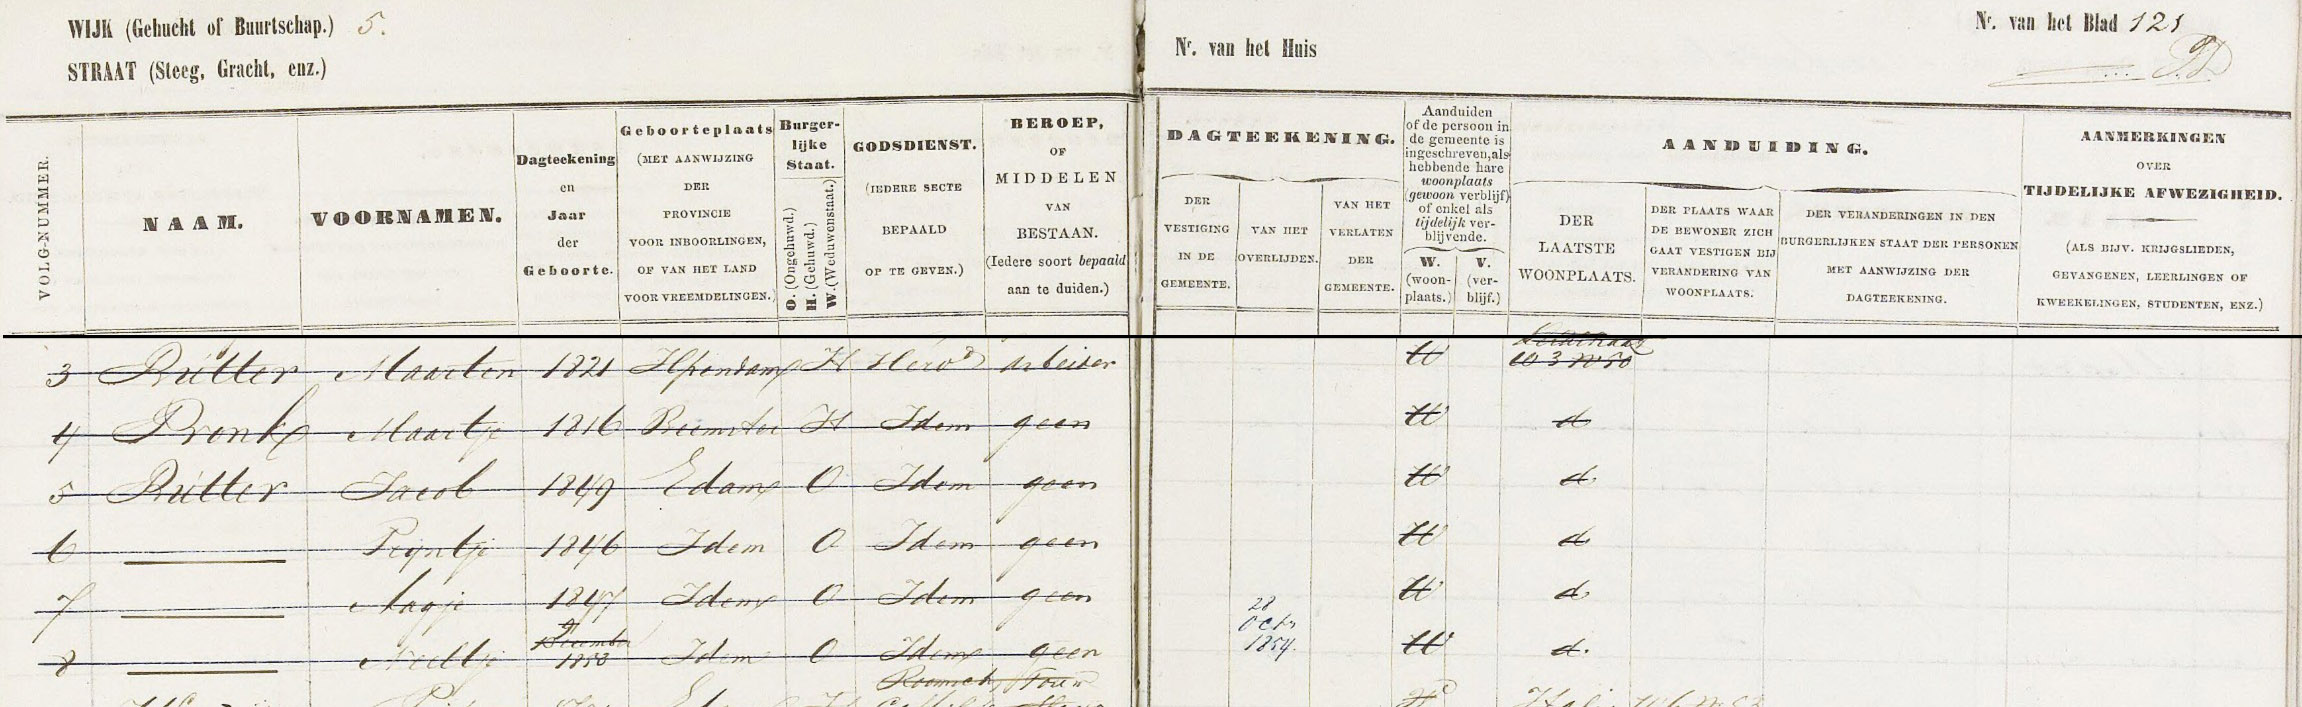 WIJK (Gehucht of Buurtschap.) 5.
STRAAT (Steeg, Gracht, enz.)
Nr. van het Huis
Nr. van het Blad 121
VOLG-NUMMER.
NAAM.
VOORNAMEN.
Dagteekening
en
Jaar
der
Geboorte.
Geboorteplaats
(MET AANWIJZING
DER
PROVINCIE
VOOR INBOORLINGEN,
OF VAN HET LAND
VOOR VREEMDELINGEN.)
Burger-
lijke
Staat.
O. (Ongehuwd.)
H. (Gehuwd.)
W. (Weduwenstaat.)
GODSDIENST.
(IEDERE SECTE
BEPAALD
OP TE GEVEN.)
BEROEP,
OF
MIDDELEN
VAN
BESTAAN.
(Iedere soort bepaald
aan te duiden.)
DAGTEEKENING.
DER
VESTIGING
IN DE
GEMEENTE.
VAN HET
OVERLIJDEN.
VAN HET
VERLATEN
DER
GEMEENTE.
Aanduiden
of de persoon in
de gemeente is
ingeschreven, als
hebbende hare
woonplaats
(gewoon verblijf)
of enkel als
tijdelijk ver-
blijvende.
W.
(woon-
plaats.)
V.
(ver-
blijf.)
AANDUIDING.
DER
LAATSTE
WOONPLAATS.
DER PLAATS WAAR
DE BEWONER ZICH
GAAT VESTIGEN BIJ
VERANDERING VAN
WOONPLAATS.
DER VERANDERINGEN IN DEN
BURGERLIJKEN STAAT DER PERSONEN
MET AANWIJZING DER
DAGTEEKENING.
AANMERKINGEN
OVER
TIJDELIJKE AFWEZIGHEID.
(ALS BIJV. KRIJGSLIEDEN,
GEVANGENEN, LEERLINGEN OF
KWEEKELINGEN, STUDENTEN, ENZ.)
3 Rutter Maarten 1821 Ilpendam H Herv<sup>d</sup> arbeider W W 3 N 50
4 Pronk Maartje 1816 Beemster H Idem geen W d
5 Rutter Jacob 1849 Edam O Idem geen W d.
6 Trijntje 1846 Idem O Idem geen W d
7 Aagje 1847 Idem O Idem geen W d
8 Neeltje 9 December 1853 Idem O Idem geen 28 Octr 1854. W d.
Roomsch